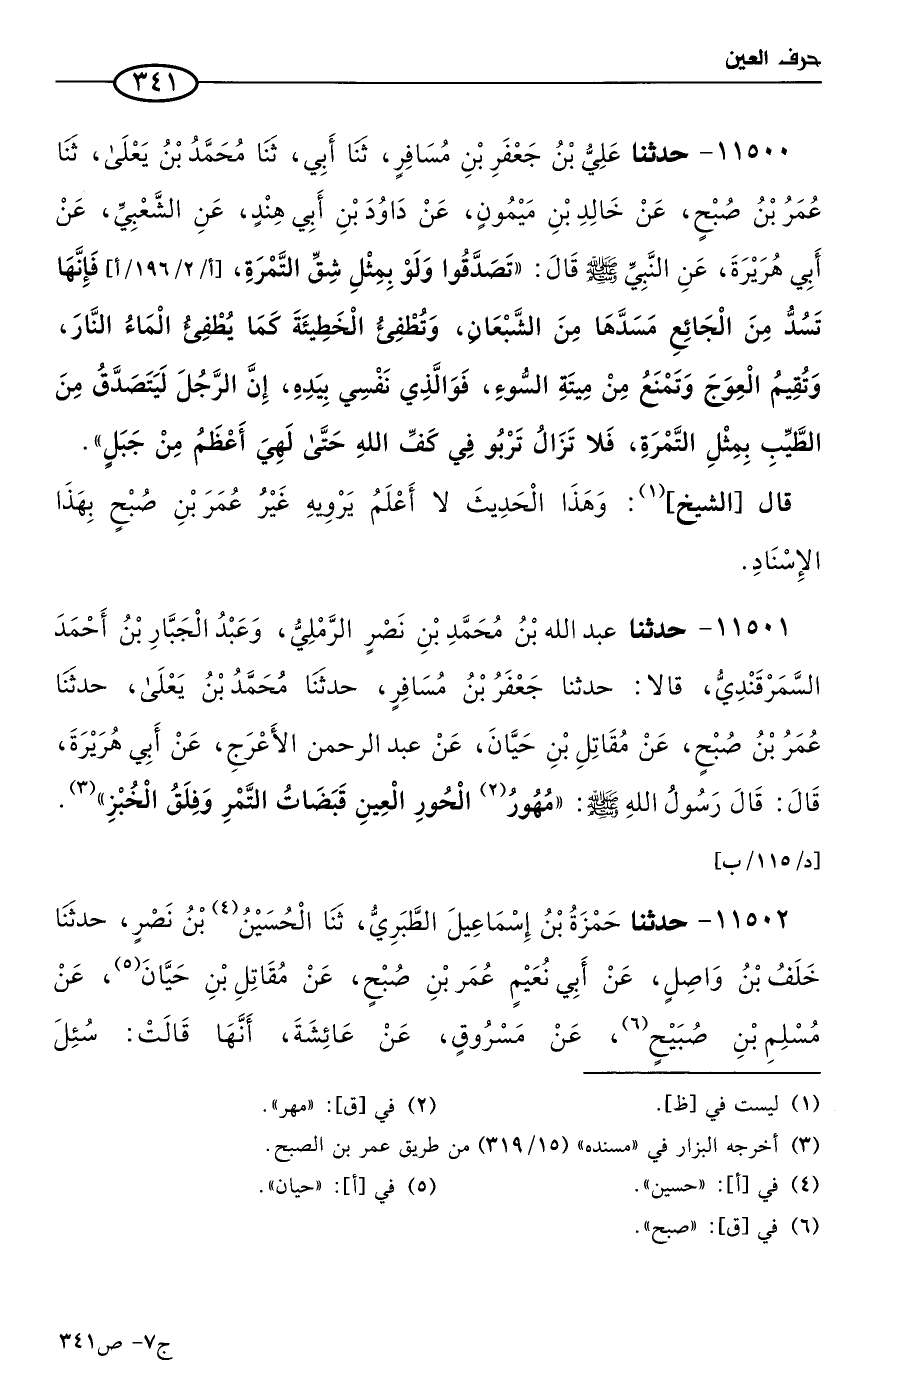 حرف العين
٣٤١
١١٥٠٠- حدثنا عَلِيُّ بْنُ جَعْفَرِ بْنِ مُسَافِرٍ، ثَنَا أَبِي، ثَنَا مُحَمَّدُ بْنُ يَعْلَىٰ، ثَنَا
عُمَرُ بْنُ صُبْحٍ، عَنْ خَالِدِ بْنِ مَيْمُونٍ، عَنْ دَاوُدَ بْنِ أَبِي هِنْدٍ، عَنِ الشَّعْبِيِّ، عَنْ
أَبِي هُرَيْرَةَ، عَنِ النَّبِيِّ ﷺ قَالَ: «تَصَدَّقُوا وَلَوْ بِمِثْلِ شِقِّ التَّمْرَةِ، [أ/٢/١٩٦/أ] فَإِنَّهَا
تَسُدُّ مِنَ الْجَائِعِ مَسَدَّهَا مِنَ الشَّبْعَانِ، وَتُطْفِئُ الْخَطِيئَةَ كَمَا يُطْفِئُ الْمَاءُ النَّارَ،
وَتُقِيمُ الْعِوَجَ وَتَمْنَعُ مِنْ مِيتَةِ السُّوءِ، فَوَالَّذِي نَفْسِي بِيَدِهِ، إِنَّ الرَّجُلَ لَيَتَصَدَّقُ مِنَ
الطَّيِّبِ بِمِثْلِ التَّمْرَةِ، فَلا تَزَالُ تَرْبُو فِي كَفِّ اللهِ حَتَّىٰ لَهِيَ أَعْظَمُ مِنْ جَبَلٍ».
قال [الشيخ](١): وَهَذَا الْحَدِيثَ لا أَعْلَمُ يَرْوِيهِ غَيْرُ عُمَرَ بْنِ صُبْحٍ بِهَذَا
الإِسْنَادِ.
١١٥٠١- حدثنا عبد الله بْنُ مُحَمَّدِ بْنِ نَصْرٍ الرَّمْلِيُّ، وَعَبْدُ الْجَبَّارِ بْنُ أَحْمَدَ
السَّمَرْقَنْدِيُّ، قالا: حدثنا جَعْفَرُ بْنُ مُسَافِرٍ، حدثَنَا مُحَمَّدُ بْنُ يَعْلَىٰ، حدثَنَا
عُمَرُ بْنُ صُبْحٍ، عَنْ مُقَاتِلِ بْنِ حَيَّانَ، عَنْ عبد الرحمن الأَعْرَجِ، عَنْ أَبِي هُرَيْرَةَ،
قَالَ: قَالَ رَسُولُ اللهِ ﷺ: «مُهُورُ(٢) الْحُورِ الْعِينِ قَبَضَاتُ التَّمْرِ وَفِلَقُ الْخُبْزِ»(٣).
[د/١١٥/ب]
١١٥٠٢- حدثنا حَمْزَةُ بْنُ إِسْمَاعِيلَ الطَّبَرِيُّ، ثَنَا الْحُسَيْنُ(٤) بْنُ نَصْرٍ، حدثَنَا
خَلَفُ بْنُ وَاصِلٍ، عَنْ أَبِي نُعَيْمٍ عُمَرَ بْنِ صُبْحٍ، عَنْ مُقَاتِلِ بْنِ حَيَّانَ(٥)، عَنْ
مُسْلِمِ بْنِ صُبَيْحٍ(٦)، عَنْ مَسْرُوقٍ، عَنْ عَائِشَةَ، أَنَّهَا قَالَتْ: سُئِلَ
(١) ليست في [ظ]. (٢) في [ق]: «مهر».
(٣) أخرجه البزار في «مسنده» (٣١٩/١٥) من طريق عمر بن الصبح.
(٤) في [أ]: «حسين». (٥) في [أ]: «حيان».
(٦) في [ق]: «صبح».
ج٧- ص٣٤١